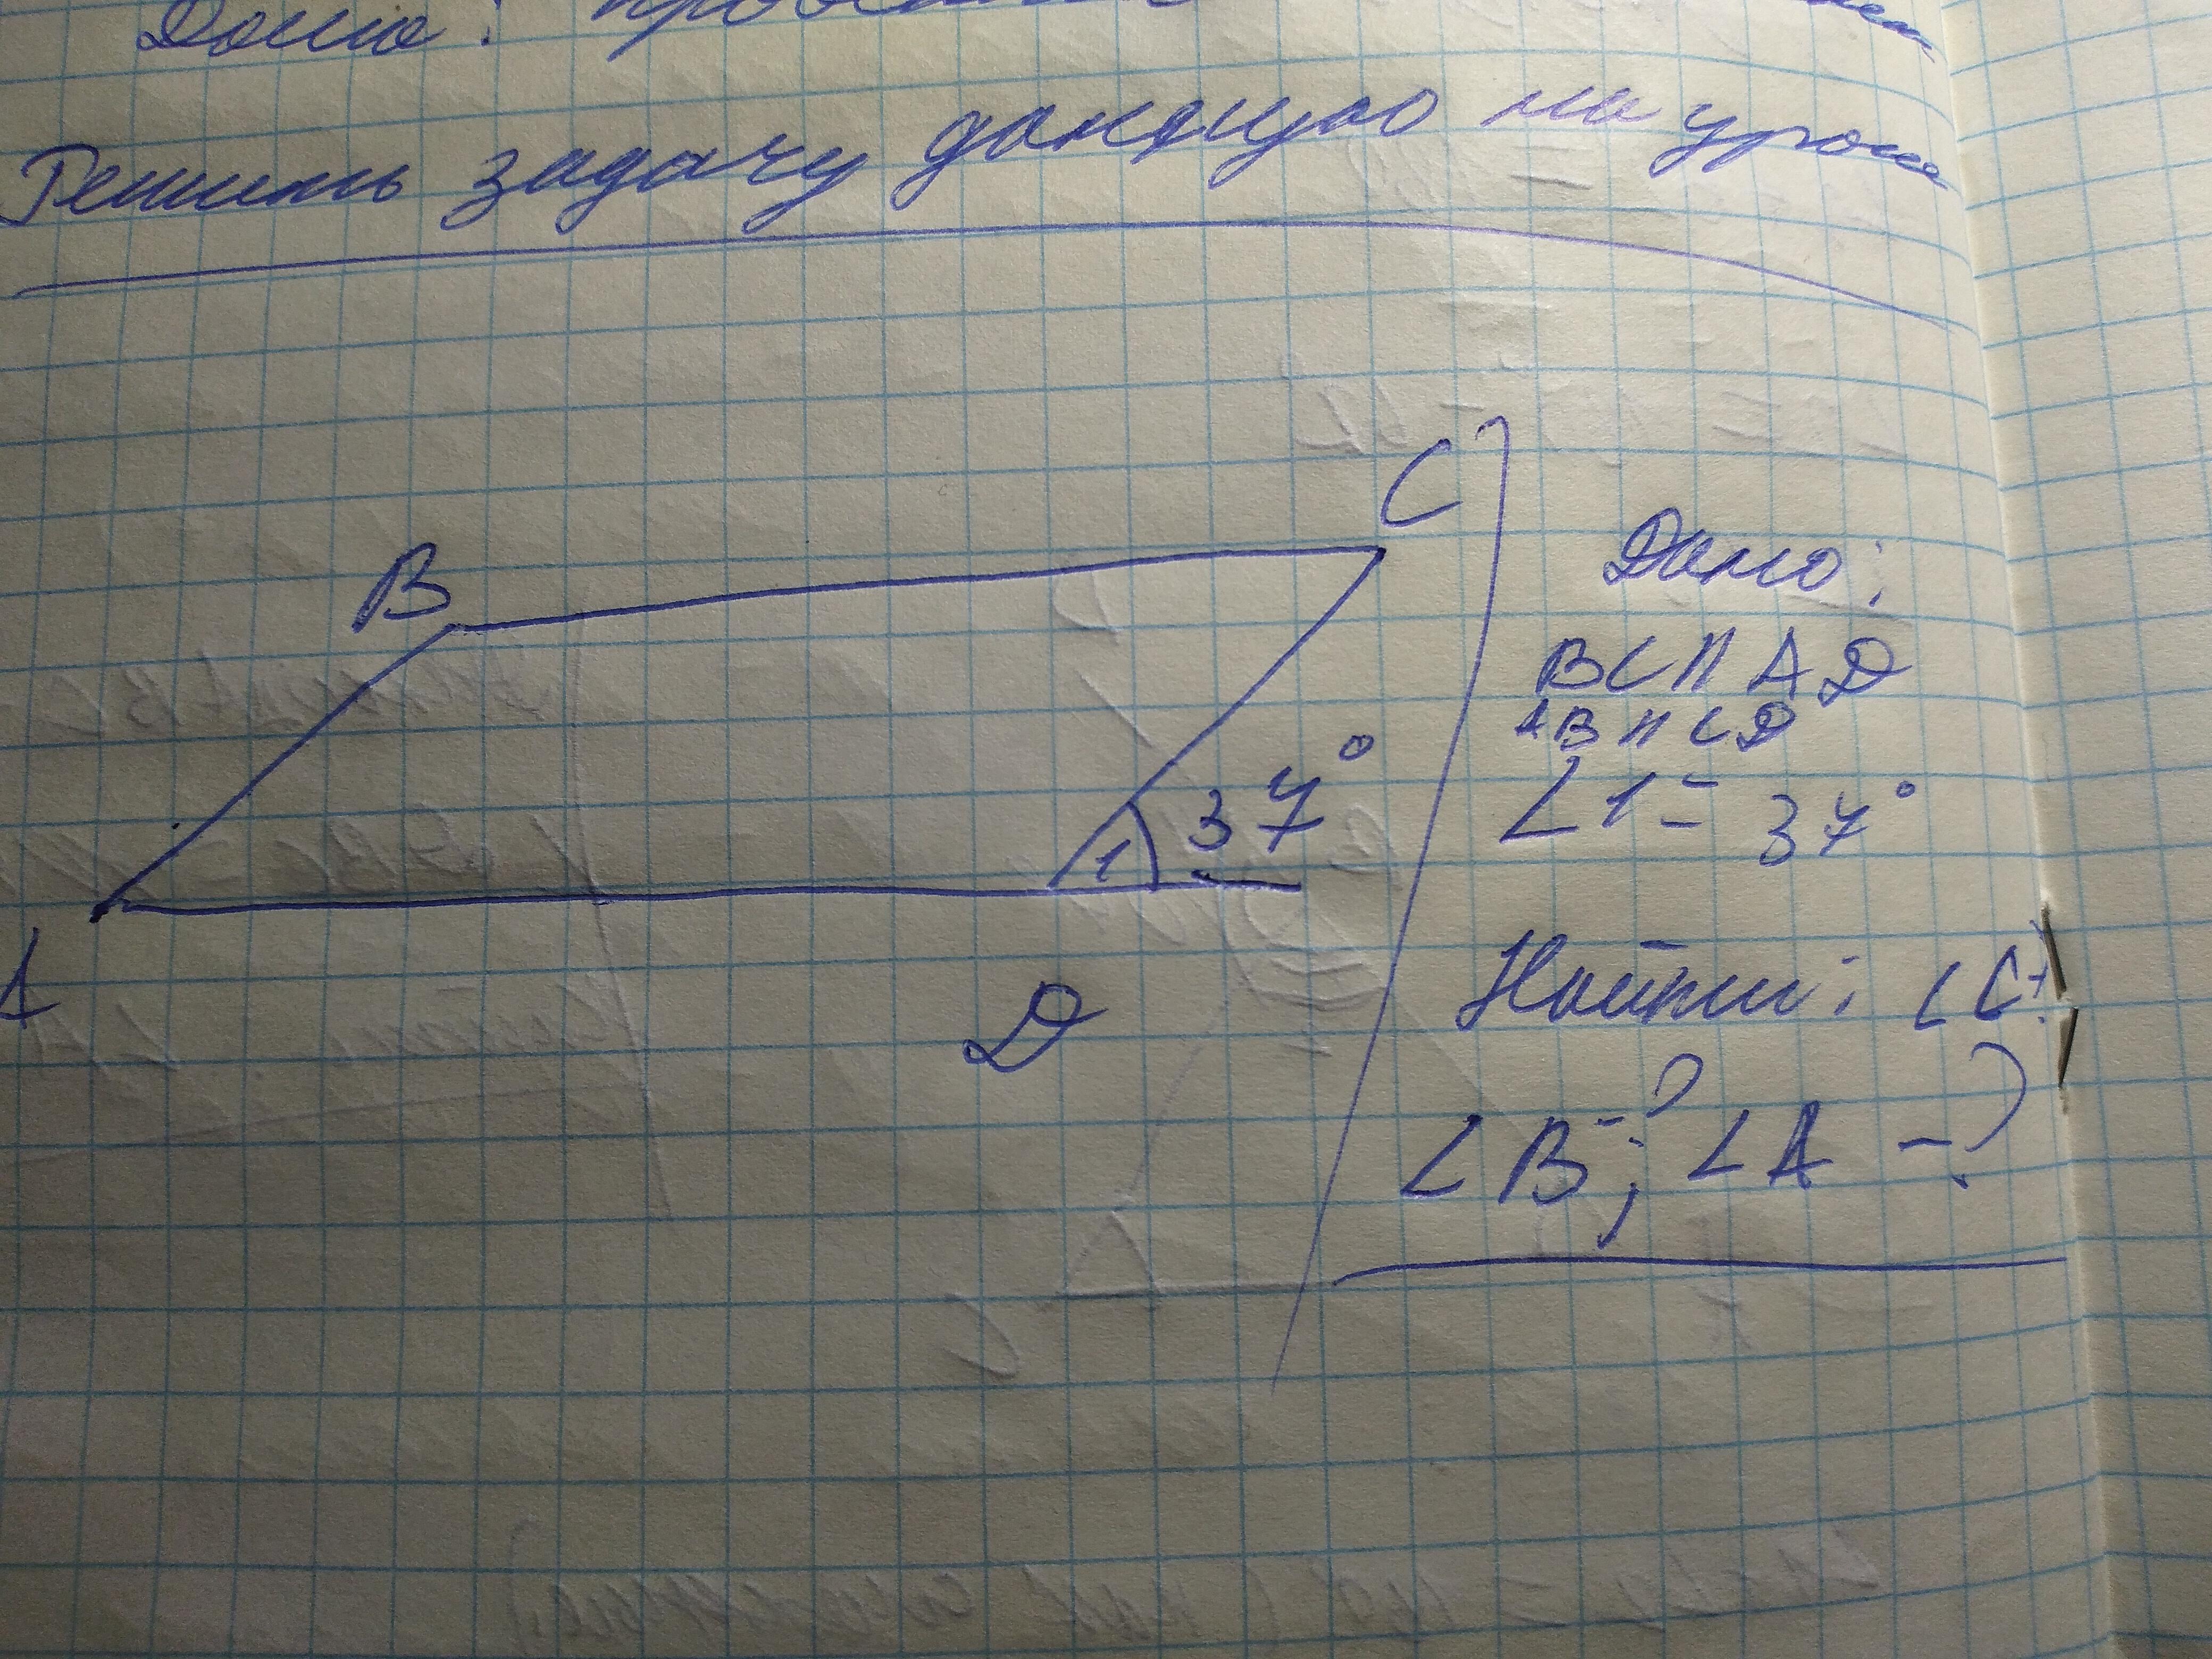 Дано:
Решить задачу данную на уроке
B
C
37°
1
A
D
Дано:
BC || AD
AB || CD
∠1 = 37°
Найти: ∠C-?
∠B-?; ∠A-?